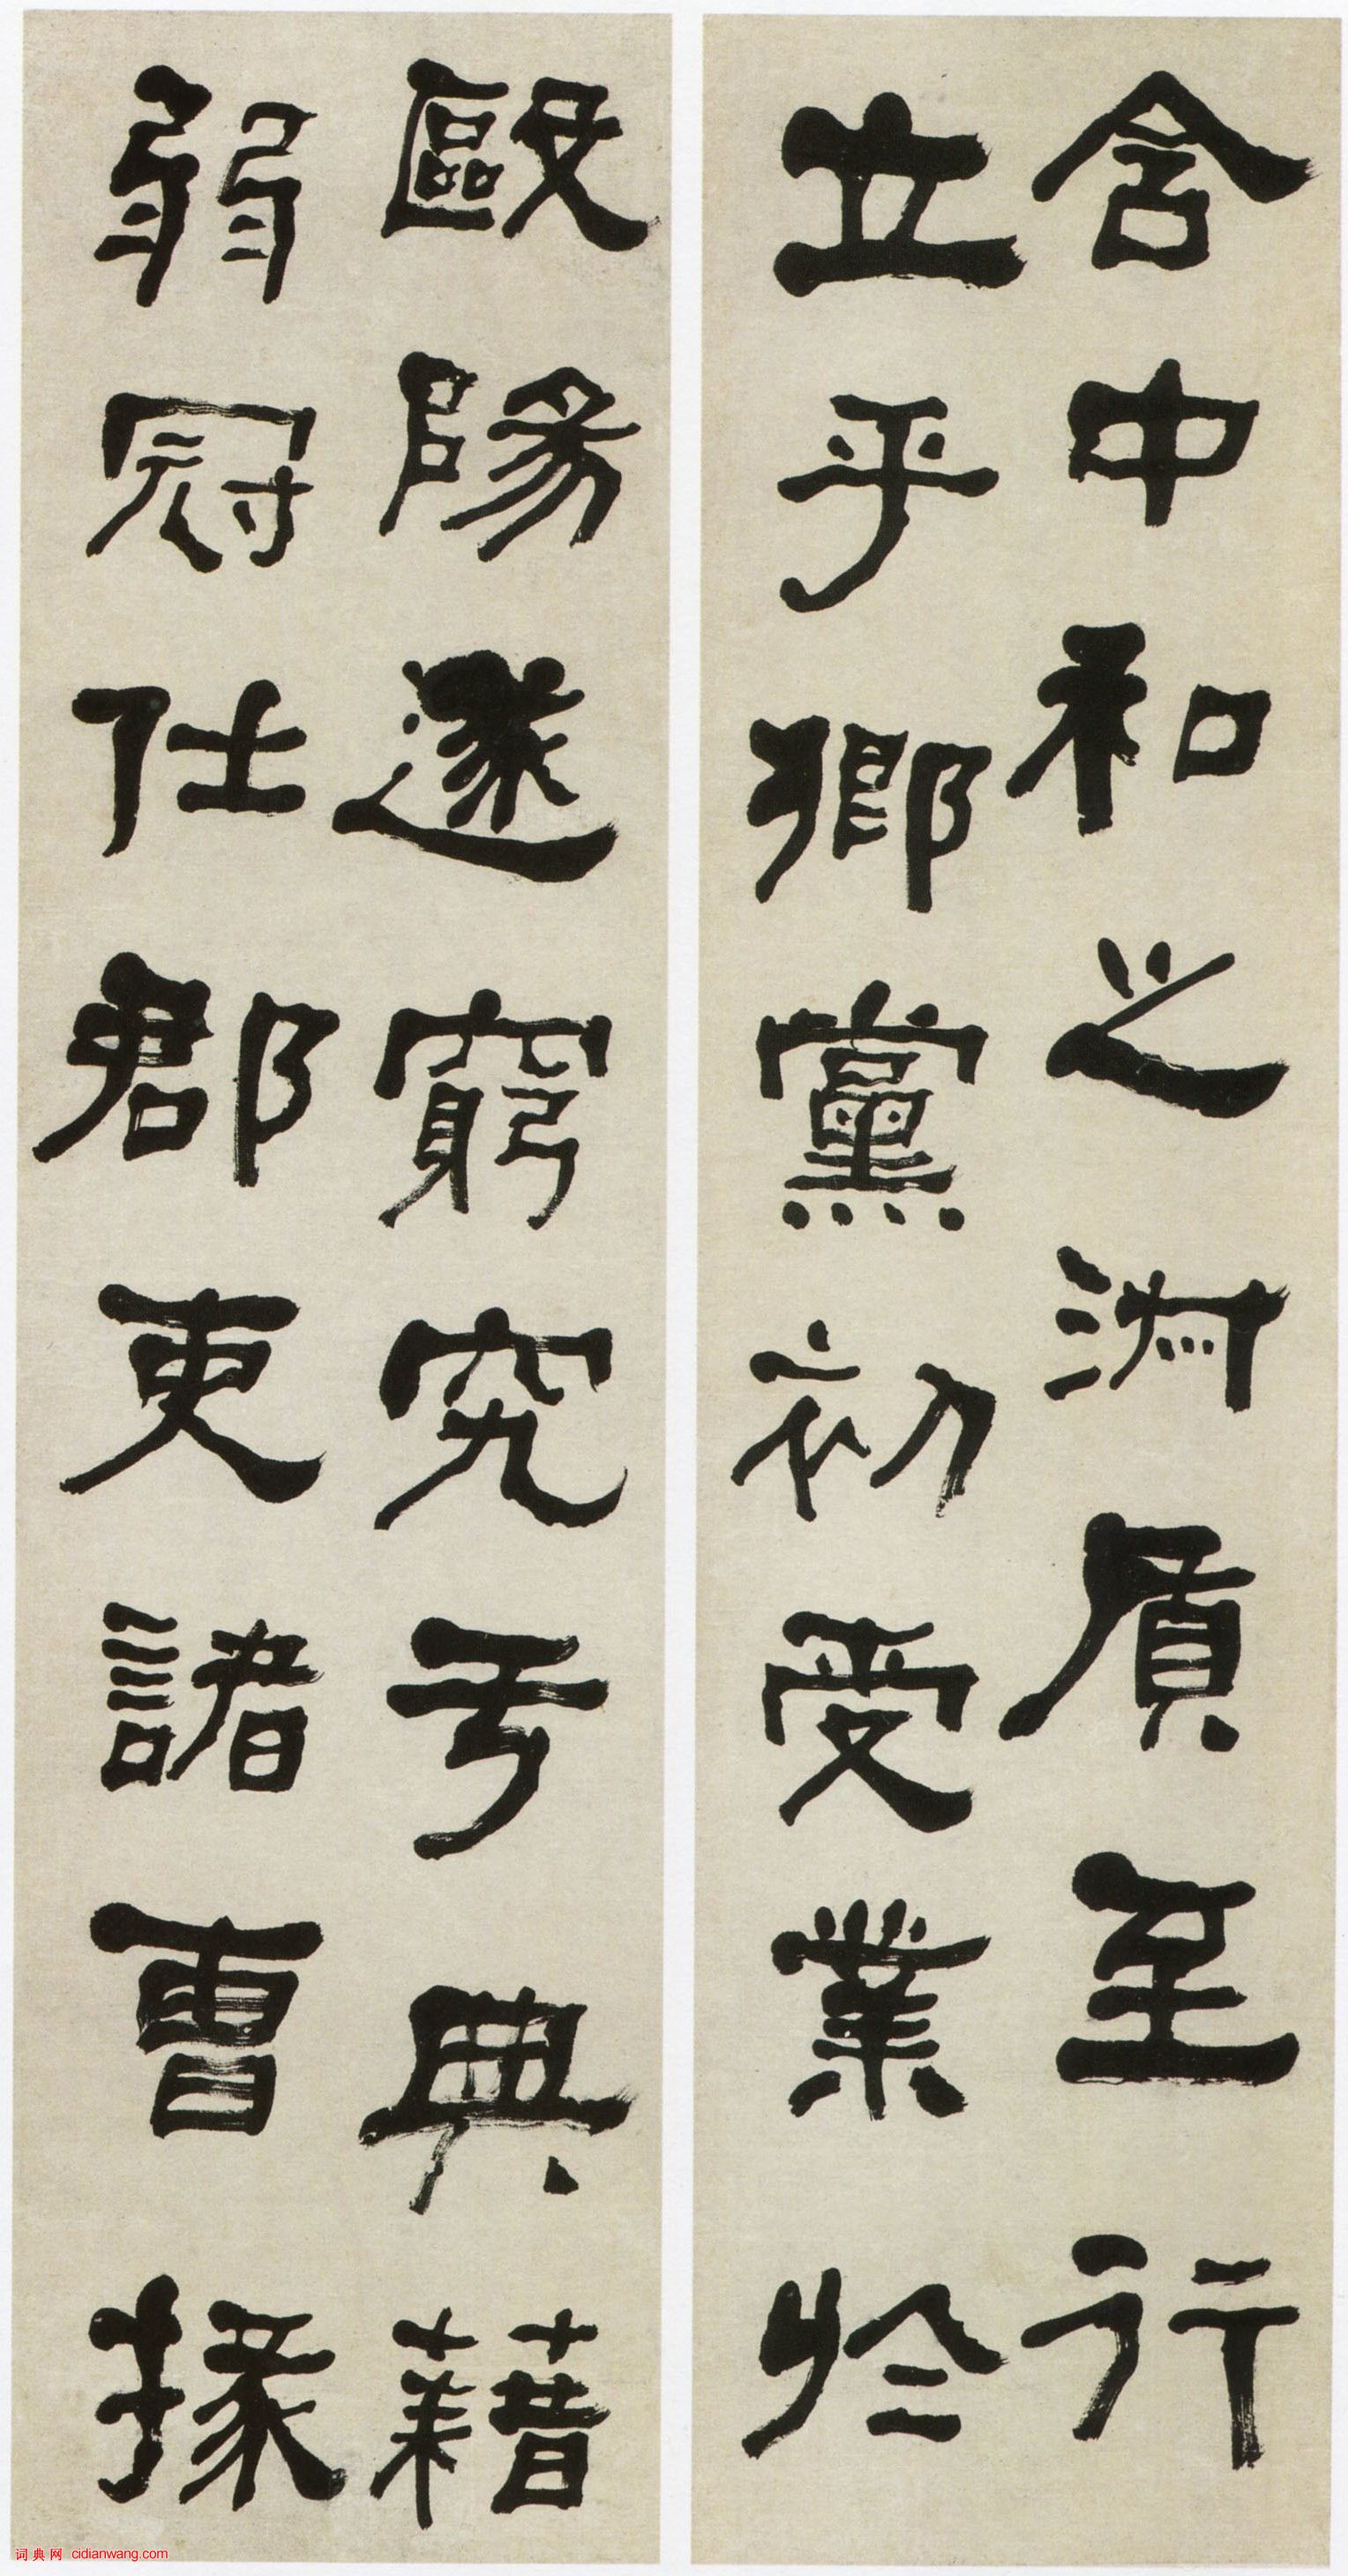 含中和之淑質至行
立乎鄉黨初受業於
毆陽遂窮究于典藉
弱冠仕郡吏諸曹掾
词典网 cidianwang.com